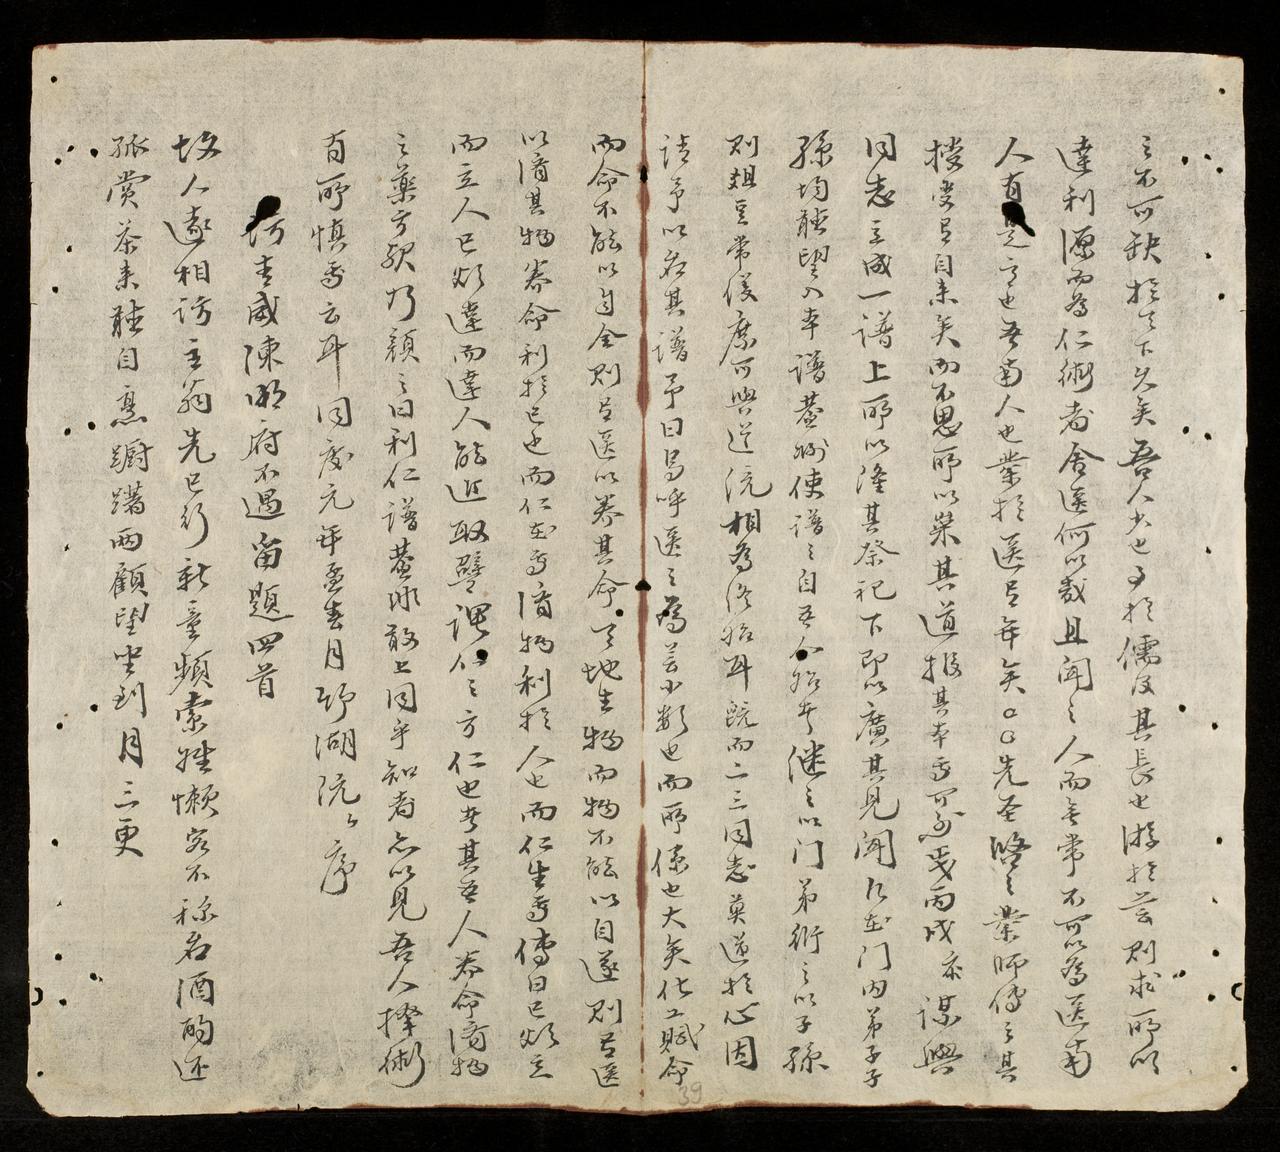 之不可缺於天下久矣吾人少也事於儒及其長也游於芸則求所以
達利源而為仁術者舍医何以哉且聞之人而無常不可以為医南
人有是言也吾南人也業於医有年矣〇〇先圣啓之業師傳之其
授受有自来矣而不思所以榮其道報其本焉可乎歲丙戌亦謀與
同志立成一譜上所以隆其祭祀下即以廣其見聞凡在門内弟子子
孫均聽望入本譜蓋例使譜之自吾人始乎継之以門弟衍之以子孫
則俎豆常優庶可與道統相為終始耳既而二三同志莫逆於心因
請予以名其譜予曰烏呼医之為芸小数也而所係也大矣化工賦命
而命不能以自全則有医以养其命天地生物而物不能以自遂則有医
以濟其物养命利於已也而仁在焉濟物利於人也而仁生焉傳曰已欲立
而立人已欲達而達人能近取譬謂仁之方仁也者其吾人养命濟物
之藥方欤乃顏之曰利仁譜蓋非敢上同乎知者亦以見吾人擇術
有所慎焉云耳同慶元年孟春月竹湖阮〻序
訪青威陳明府不過留題四首
故人遠相訪主翁先已行新童頻索姓懶客不称名酒酌还
孤賞茶来聽自烹躕躇兩顧望坐到月三更
39